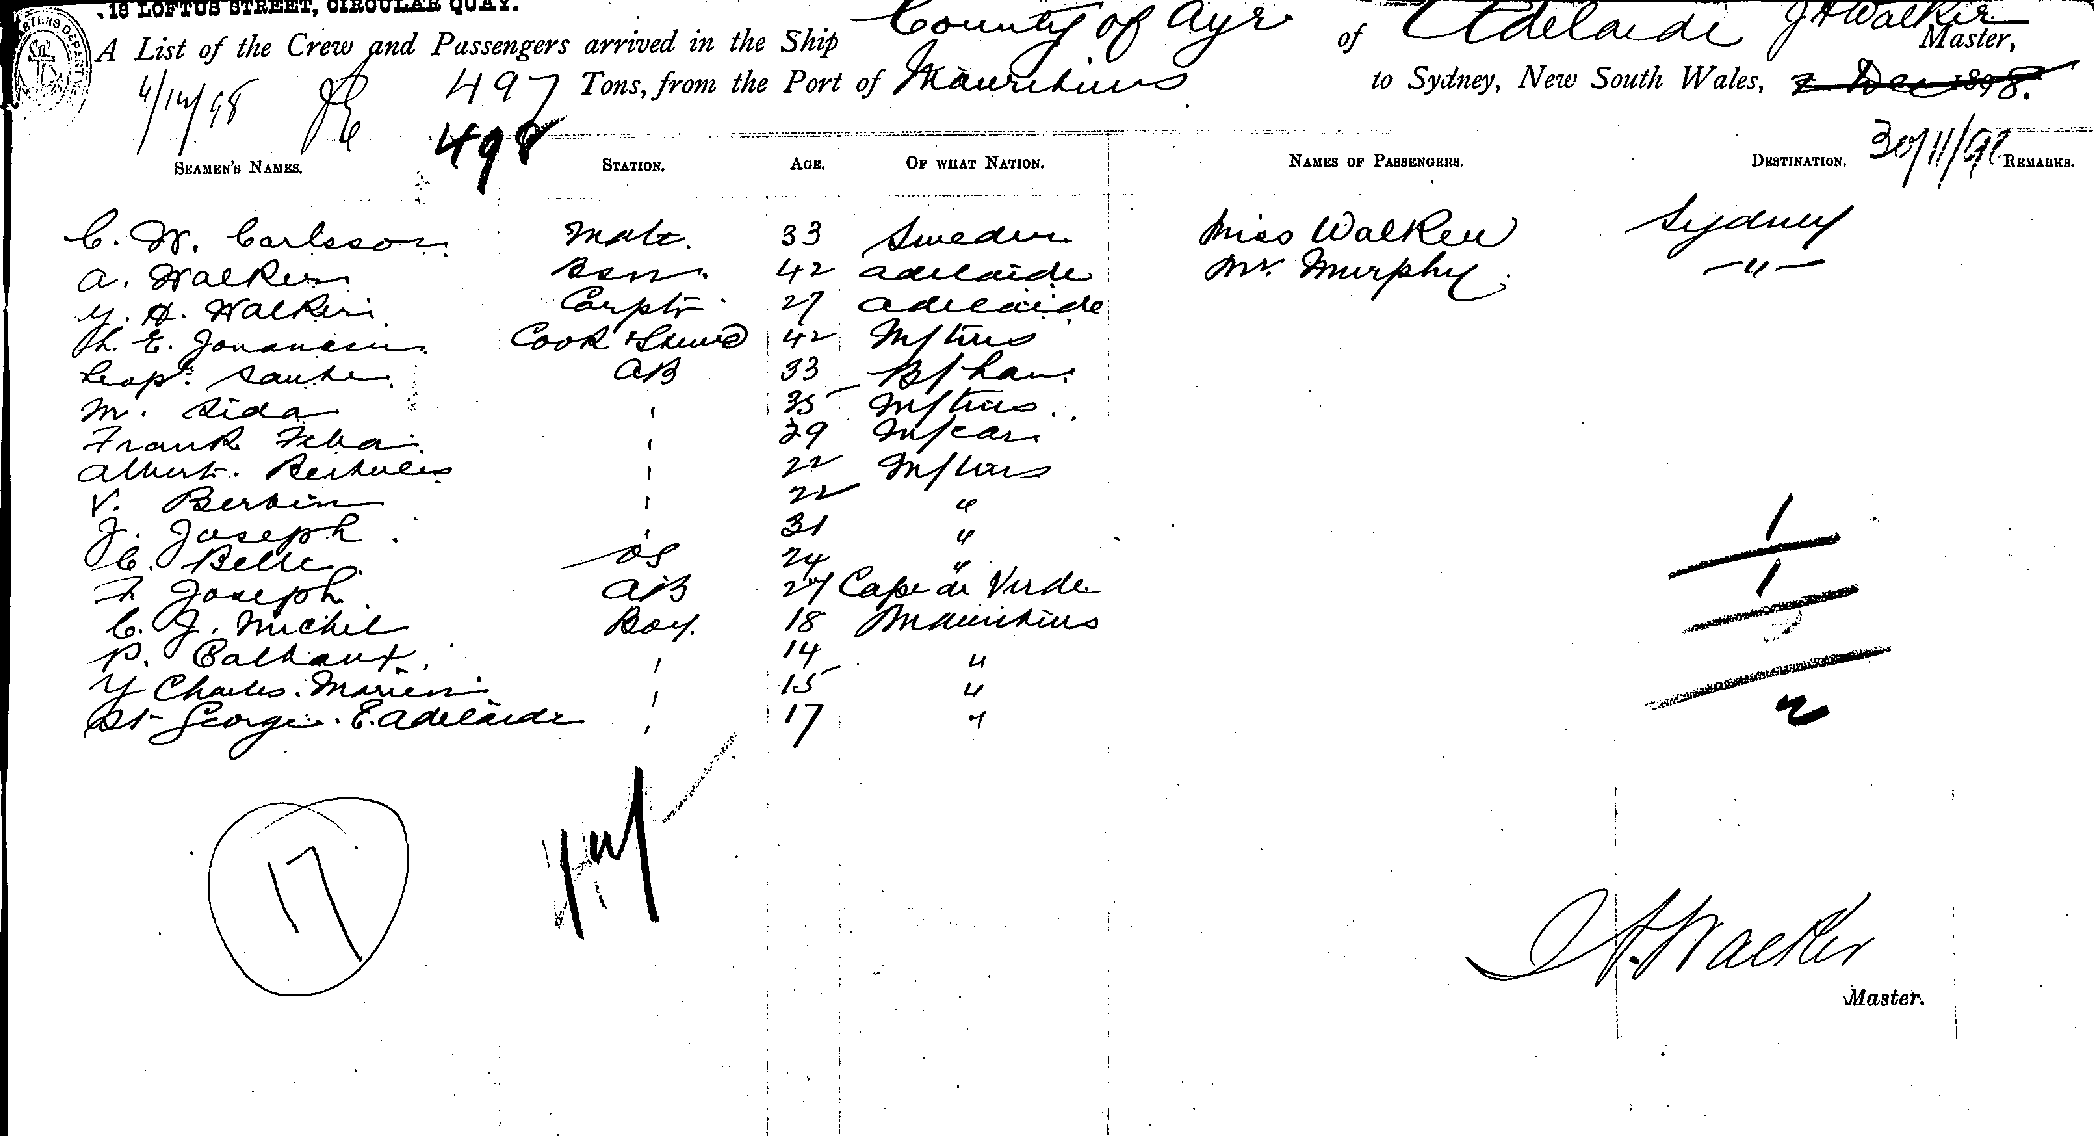 18 LOFTUS STREET, CIRCULAR QUAY.
A List of the Crew and Passengers arrived in the Ship County of Ayr of Adelaide J H Walker Master,
497 Tons, from the Port of Mauritius to Sydney, New South Wales, 2 Dec 1898.
498
30/11/98
SEAMEN'S NAMES. STATION. AGE. OF WHAT NATION. NAMES OF PASSENGERS. DESTINATION. REMARKS.
C. W. Carlsson Mate. 33 Sweden Miss Walker Sydney
A. Walker Bsn. 42 Adelaide Mr. Murphy -"-
Y. H. Walker Carptr 27 Adelaide
E. Cook & Stewd 42 M/tius
AB 33
M. Sida ' 35 M/tius
Frank ' 29
Albert ' 22 M/tius
V. ' 22 "
J. Joseph ' 31 "
C. Belle OS 24 "
F Joseph AB 27 Cape de Verde
C. J. Michel Boy. 18 Mauritius
P. ' 14 "
Y Charles. ' 15 "
St George. E. Adelaide ' 17 "
1
1
2
17
J H. Walker
Master.